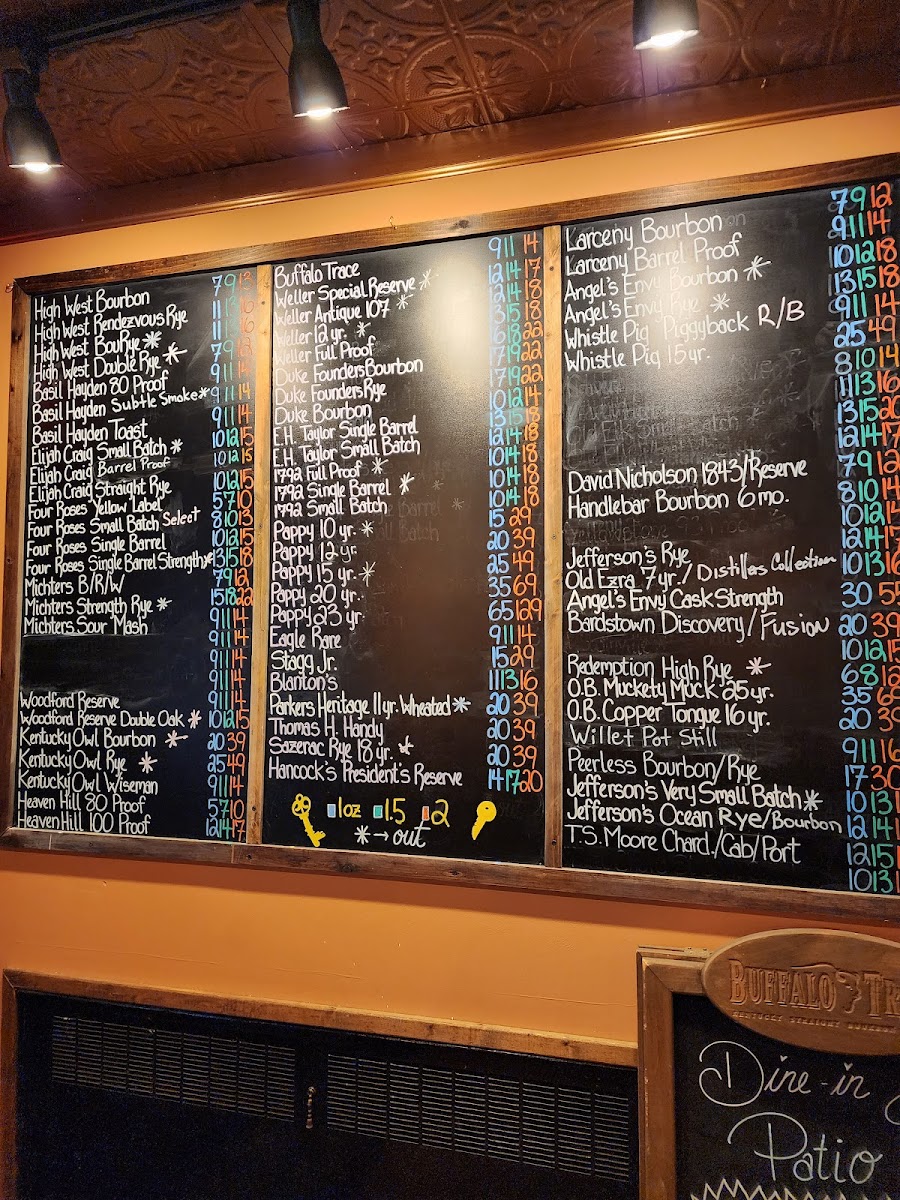 High West Bourbon
High West Rendezvous Rye
High West BouRye *
High West Double Rye *
Basil Hayden 80 Proof
Basil Hayden Subtle Smoke *
Basil Hayden Toast
Elijah Craig Small Batch *
Elijah Craig Barrel Proof
Elijah Craig Straight Rye
Four Roses Yellow Label
Four Roses Small Batch Select
Four Roses Single Barrel
Four Roses Single Barrel Strength *
Michters B/R/W
Michters Strength Rye *
Michters Sour Mash
Woodford Reserve
Woodford Reserve Double Oak *
Kentucky Owl Bourbon *
Kentucky Owl Rye *
Kentucky Owl Wiseman
Heaven Hill 80 Proof
Heaven Hill 100 Proof
7 9 13
11 13 16
11 16
7 9
9 11 14
9 11 14
9 11 14
10 12 15
10 12 15
10 12 15
5 7 10
8 10 13
10 12 15
13 15 18
7 9 12
15 18 22
9 11 14
9 11 14
9 11 14
9 11 14
9 11 14
10 12 15
20 39
25 49
9 11 14
5 7 10
12 14 17
Buffalo Trace
Weller Special Reserve *
Weller Antique 107 *
Weller 12 yr. *
Weller Full Proof
Duke Founders Bourbon
Duke Founders Rye
Duke Bourbon
E.H. Taylor Single Barrel
E.H. Taylor Small Batch
1792 Full Proof *
1792 Single Barrel *
1792 Small Batch
Pappy 10 yr. *
Pappy 12 yr.
Pappy 15 yr. *
Pappy 20 yr.
Pappy 23 yr.
Eagle Rare
Stagg Jr.
Blanton's
Parkers Heritage 11 yr. Wheated *
Thomas H. Handy
Sazerac Rye 18 yr. *
Hancock's President's Reserve
9 11 14
12 14 17
12 14 18
13 15 18
16 18 22
17 19 22
17 19 22
10 12 14
13 15 18
12 14 18
10 14 18
10 14 18
10 14 18
15 29
20 39
25 49
35 69
65 129
9 11 14
15 29
11 13 16
20 39
20 39
20 39
14 17 20
1oz 1.5 2
* → out
Larceny Bourbon
Larceny Barrel Proof
Angel's Envy Bourbon *
Angel's Envy Rye *
Whistle Pig Piggyback R/B
Whistle Pig 15 yr.
David Nicholson 1843/Reserve
Handlebar Bourbon 6 mo.
Jefferson's Rye
Old Ezra 7 yr. / Distillers Collection
Angel's Envy Cask Strength
Bardstown Discovery/Fusion
Redemption High Rye *
O.B. Muckety Muck 25 yr.
O.B. Copper Tongue 16 yr.
Willet Pot Still
Peerless Bourbon/Rye
Jefferson's Very Small Batch *
Jefferson's Ocean Rye/Bourbon
T.S. Moore Chard./Cab/Port
7 9 12
9 11 14
10 12 18
13 15 18
9 11 14
25 49
8 10 14
11 13 16
13 15 20
12 14 17
7 9 12
8 10 14
10 12 14
12 14 17
10 13 16
30 55
20 39
10 12 15
6 8 12
35 69
20 39
9 11 16
17 30
10 13
12 14
12 15
10 13
BUFFALO TR
KENTUCKY STRAIGHT BOURBON
Dine-in
Patio